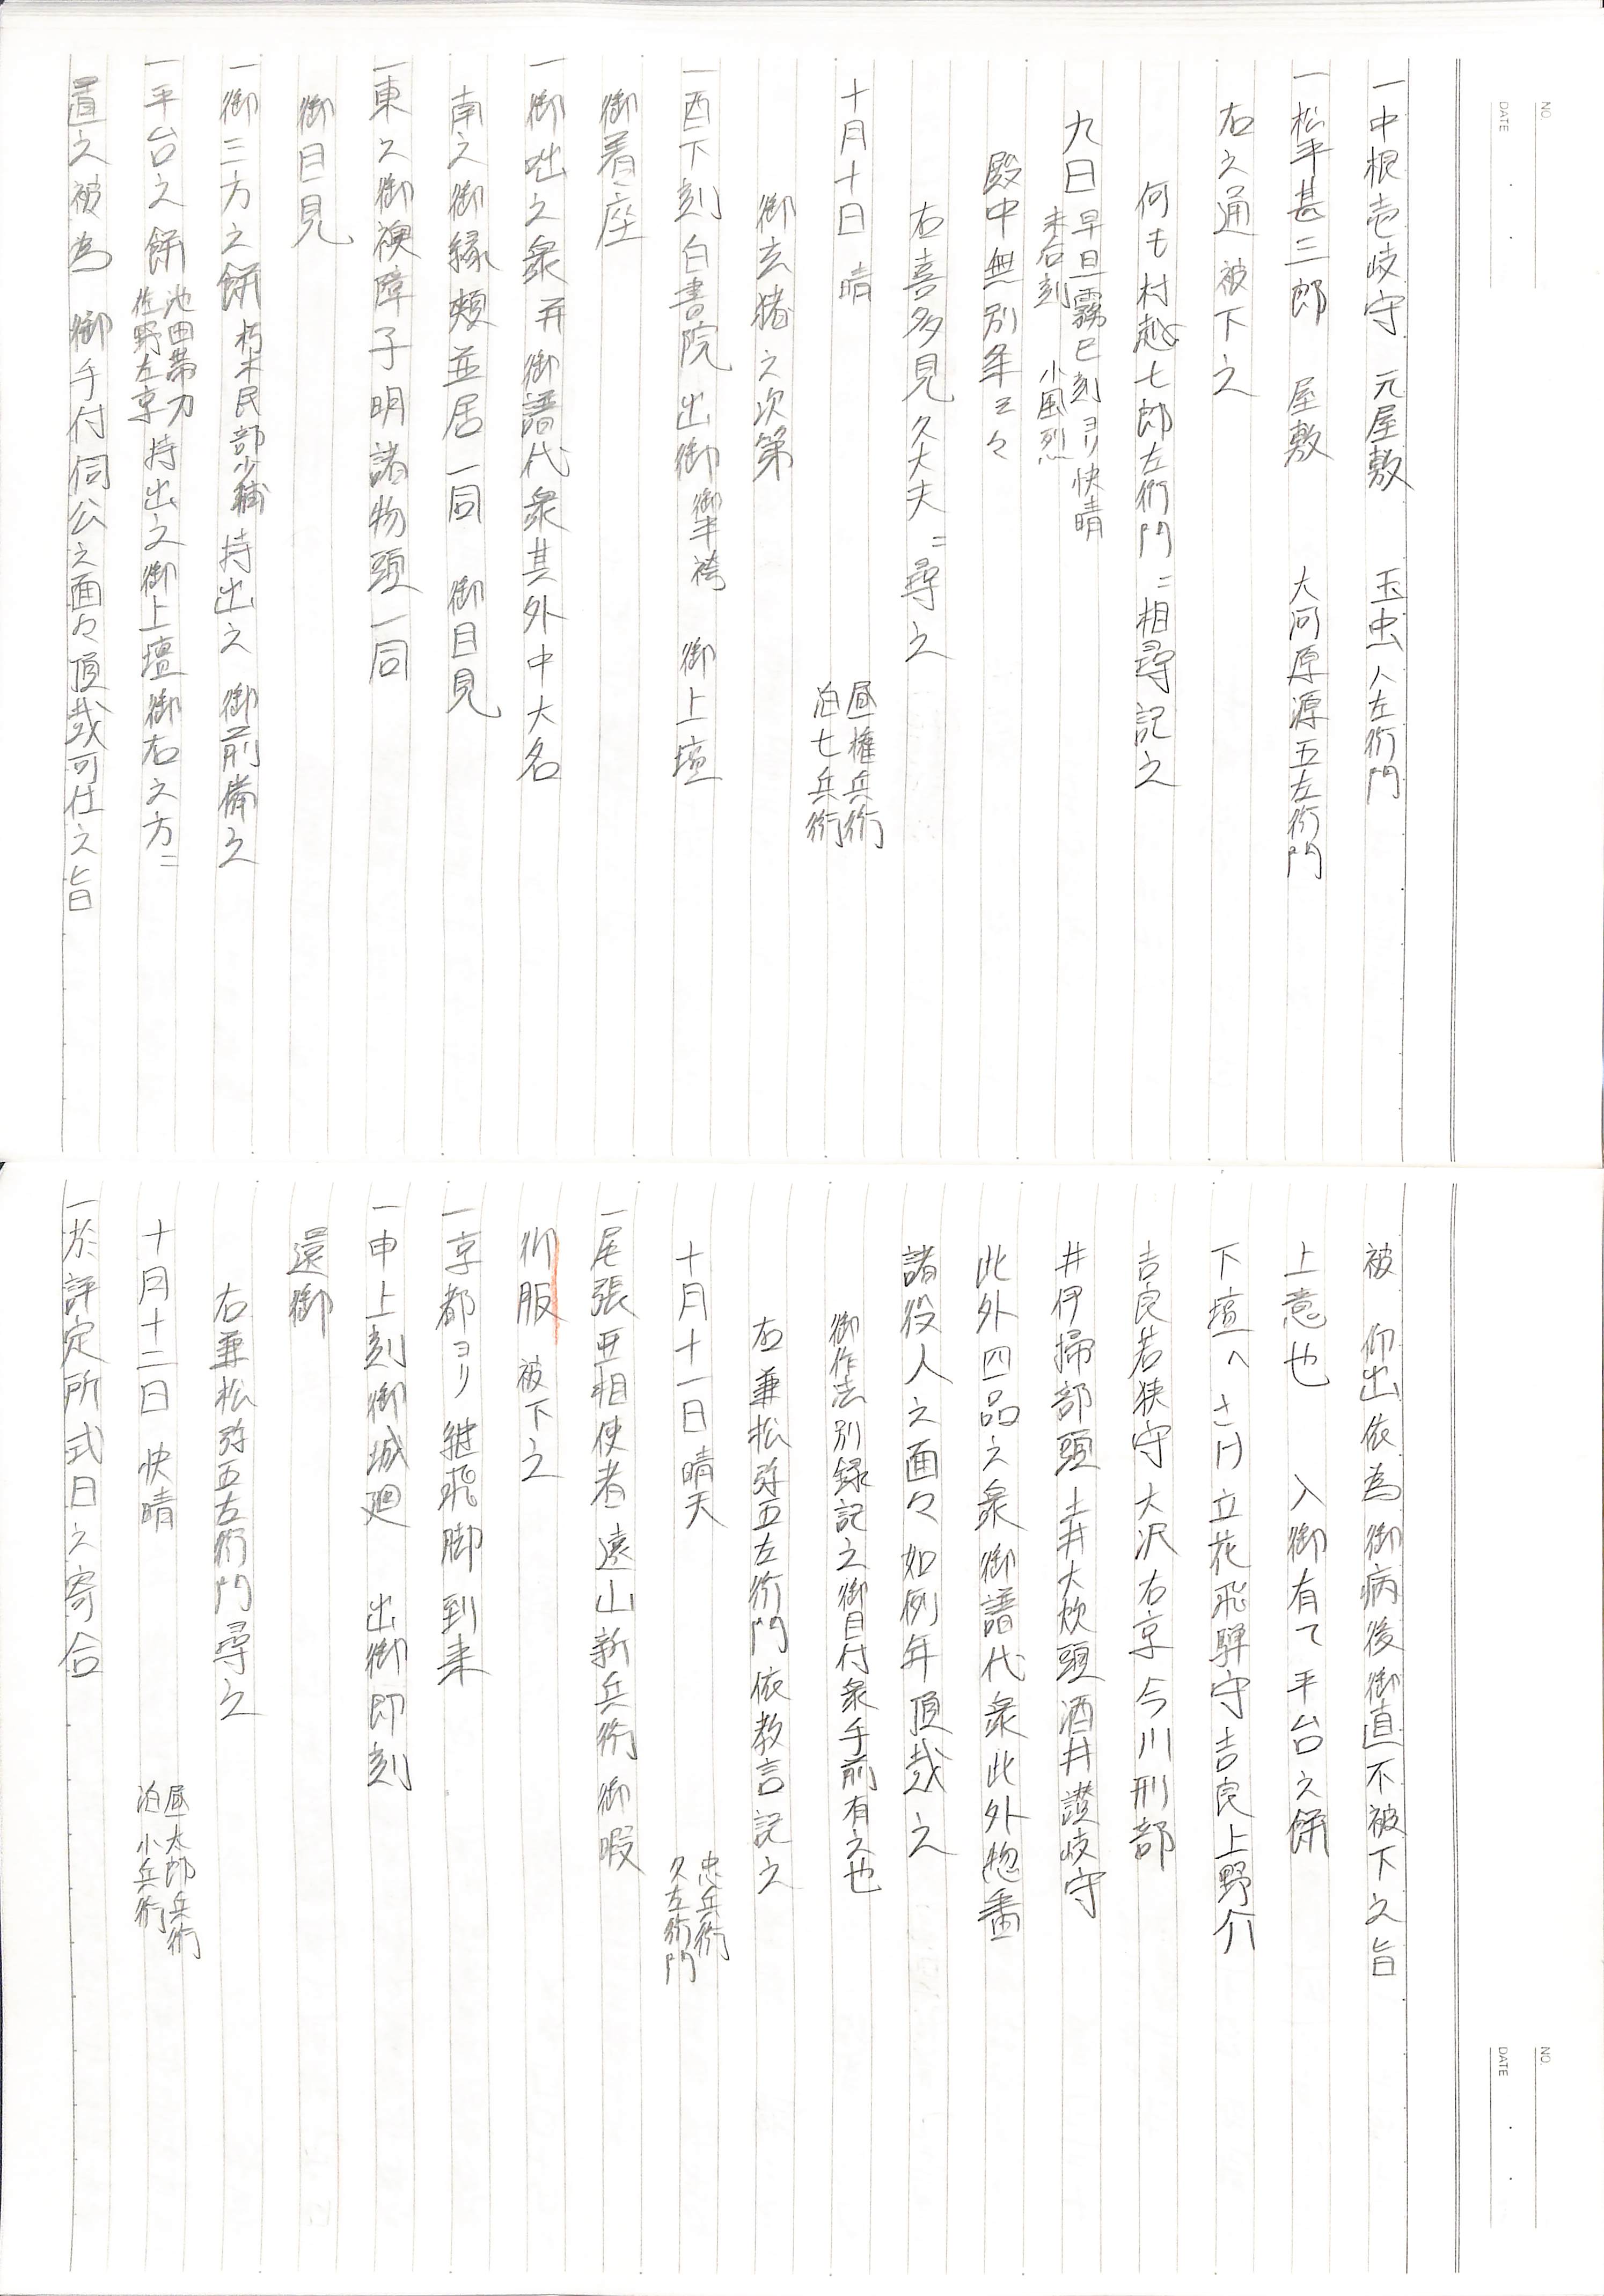 NO.
DATE
一中根壱岐守 元屋敷 玉虫八左衛門
一松平甚三郎 屋敷 大河原源五左衛門
右之通被下之
何も村越七郎左衛門ニ相尋記之
九日 早旦霧巳刻ヨリ快晴
未右刻 小風烈
殿中無別条云々
右喜多見久大夫ニ尋之
十月十日 晴 昼権兵衛
泊七兵衛
御玄猪之次第
一酉下刻白書院 出御 御半袴 御上壇
御着座
一御咄之衆并御譜代衆其外中大名
南之御縁頬並居一同 御目見
一東之御襖障子明諸物頭一同
御目見
一御三方之餅 朽木民部少輔 持出之 御前備之
一平台之餅 池田帯刀
佐野左京 持出之御上壇御右之方ニ
置之被為 御手付伺公之面々頂戴可仕之旨
NO.
DATE
被 仰出依為御病後御直不被下之旨
上意也 入御有て平台之餅
下壇へさけ立花飛騨守吉良上野介
吉良若狭守大沢右京今川刑部
井伊掃部頭土井大炊頭酒井讃岐守
此外四品之衆御譜代衆此外惣番
諸役人之面々如例年頂戴之
御作法別録記之御目付衆手前有之也
右兼松弥五左衛門依教言記之
十月十一日晴天 忠兵衛
久左衛門
一尾張亜相使者遠山新兵衛御暇
御服被下之
一京都ヨリ継飛脚到来
一申上刻御城廻 出御即刻
還御
右兼松弥五左衛門尋之
十月十二日 快晴 昼太郎兵衛
泊小兵衛
一於評定所式日之寄合